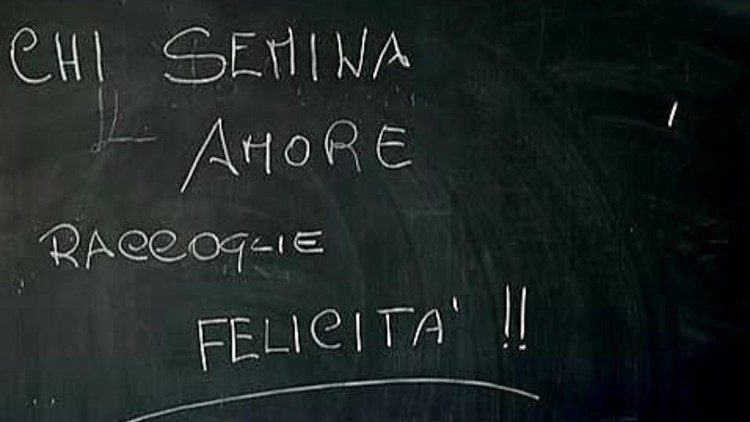 CHI SEMINA
AMORE
RACCOGLIE
FELICITA' !!